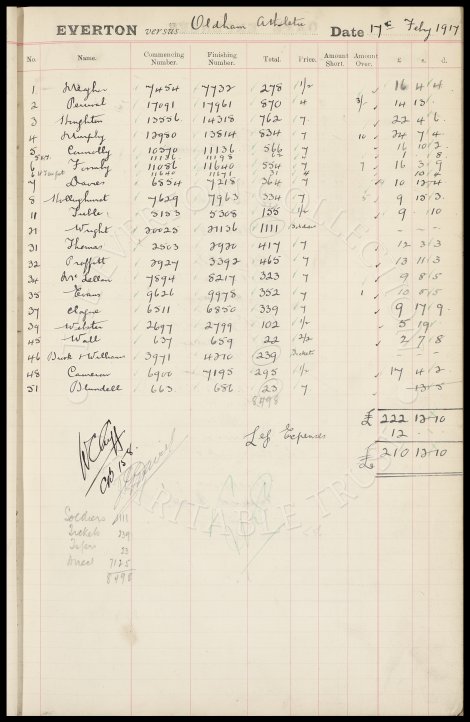 EVERTON versus Oldham Athletic Date 17th Feby 1917
No. Name. Commencing Number. Finishing Number. Total. Price. Amount Short. Amount Over. £ s. d.
1 Meagher 7454 7732 278 1/2 16 4 4
2 Percival 17091 17961 870 4 3/- 14 13
3 Houghton 13556 14318 762 7 22 4 6
4 Murphy 12980 13814 834 7 10 24 7 4
5 Connolly 10570 11136 566 7 16 10 2
11136 11198 62 1 8
6 Formby 11086 11640 554 7 7 16 3 9
11640 11671 31 4 10 4
7 Davies 6854 7218 364 7 10 12 4
8 Hollyhurst 7629 7963 334 7 5 9 15 3
11 5153 5308 155 1/2 9 10
21 Wright 20025 21136 1111
31 Thomas 2503 2920 417 7 12 3 3
32 Proffitt 2927 3392 465 7 13 11 3
34 McLellan 7894 8217 323 7 9 8 5
35 Evans 9626 9978 352 7 1 10 5 5
37 Clague 6511 6850 339 7 9 17 9
39 Webster 2697 2799 102 1/2 5 19
45 Wall 637 659 22 2/2 2 7 8
46 Buck & Williams 3971 4210 239 Tickets
48 Cameron 6900 7195 295 1/2 17 4 2
51 Blundell 663 686 23 7 13 5
8498
£ 222 12 10
Less Expenses 12
£ 210 12 10
WC Cuff
Soldiers 1111
Tickets 239
23
7125
8498